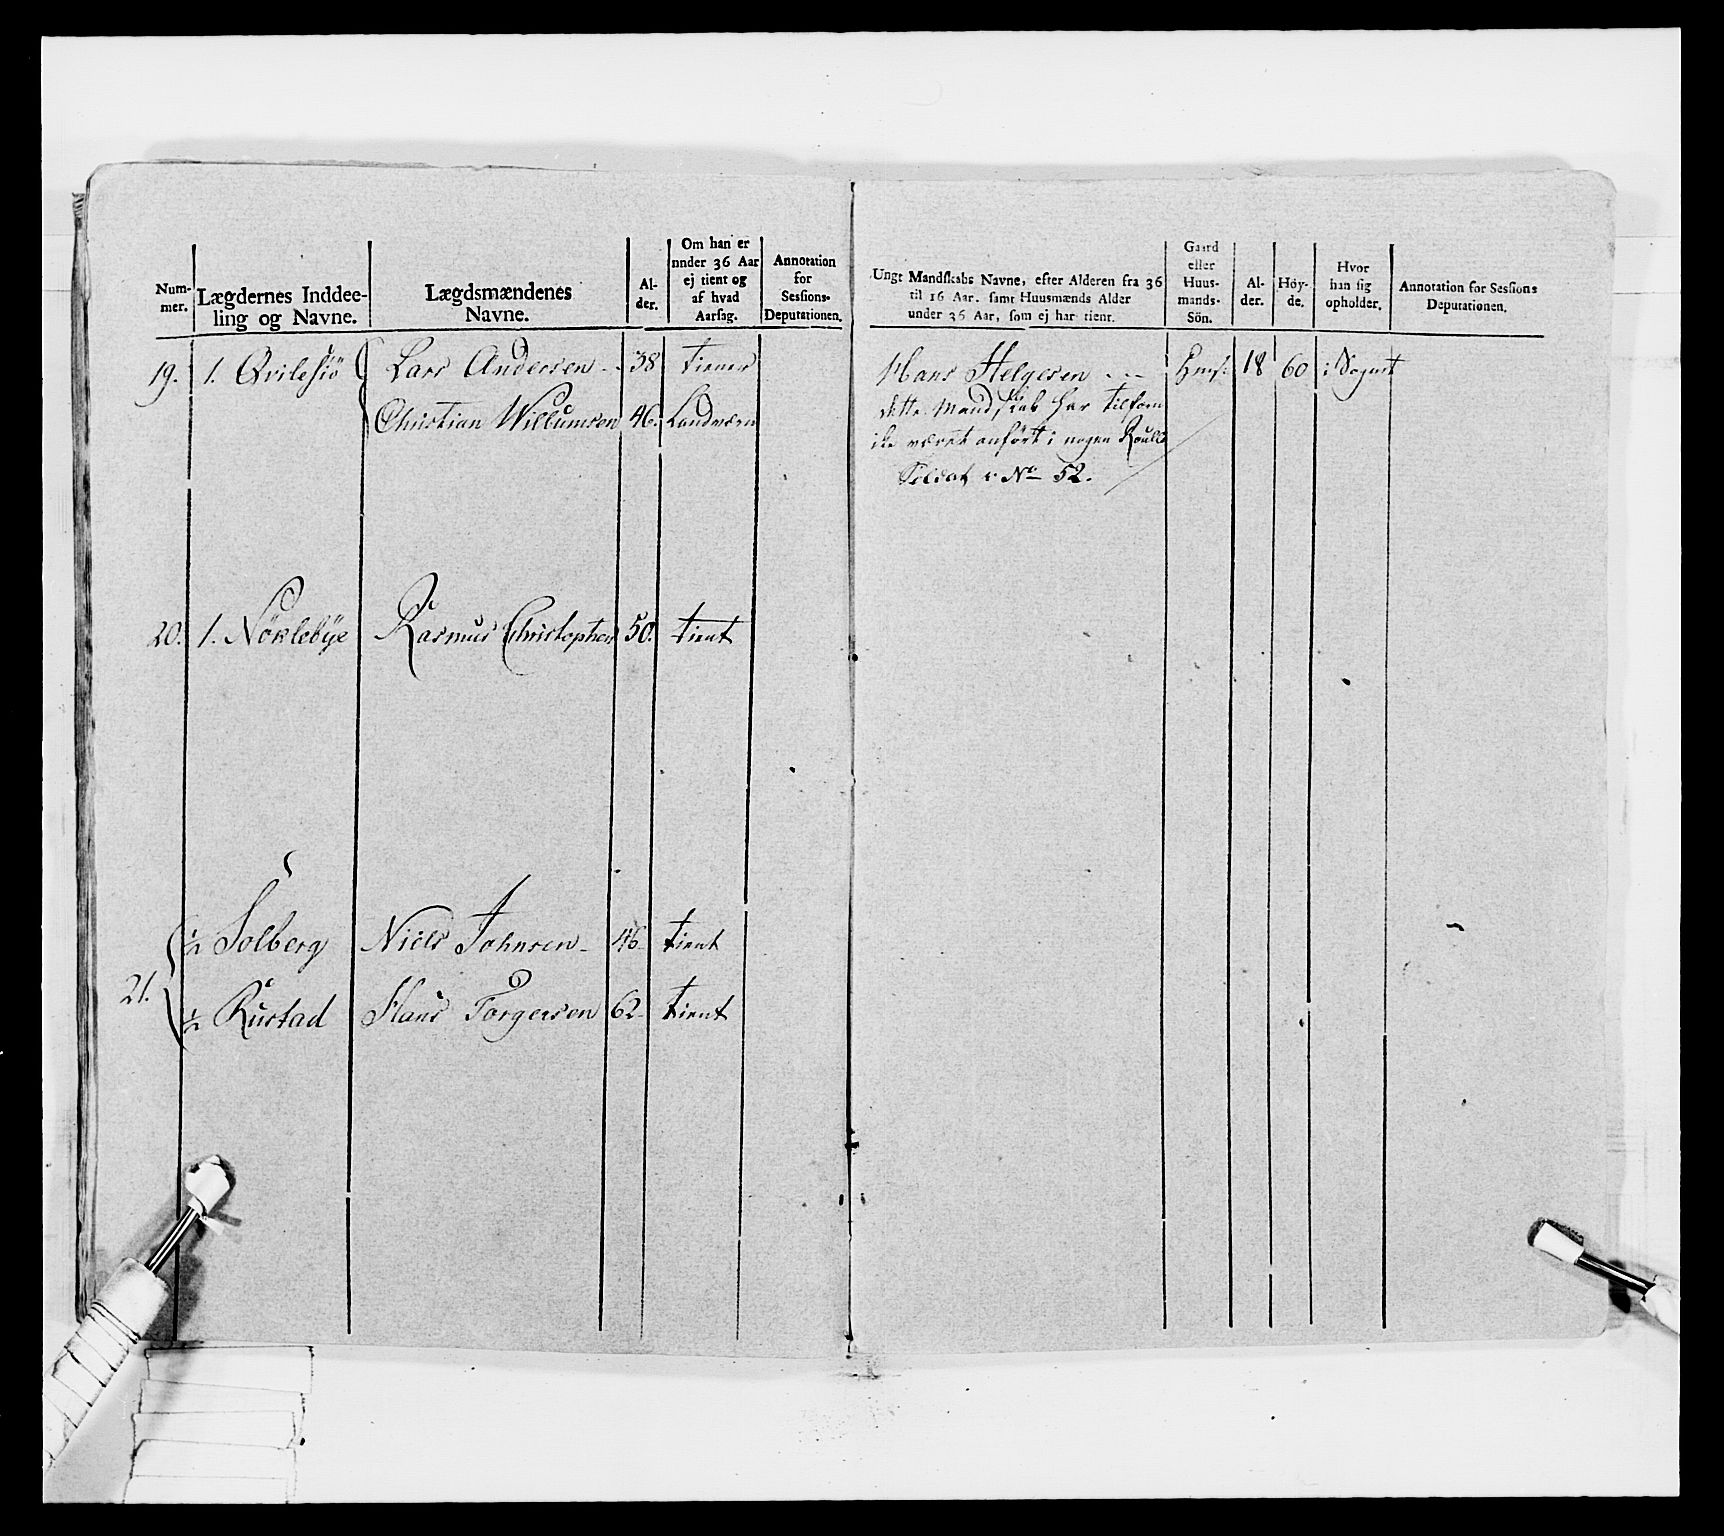 Num-
mer.
Lægdernes Inddee-
ling og Navne.
Lægdsmændenes
Navne.
Al-
der.
Om han er
under 36 Aar
ej tient og
af hvad
Aarsag.
Annotation
for
Sessions-
Deputationen.
19. 1. Qvilesiö Lars Andersen 38 tiener
Christian Willumsen 46. Landværn
20. 1. Nöklebÿe Rasmus Christophers 50. tient
21. 1/2 Solberg Niels Johnsen 46 tient
1/2 Rustad Hans Torgersen 62 tient
Ungt Mandskabs Navne, efter Alderen fra 36
til 16 Aar. samt Huusmænds Alder
under 36 Aar, som ej har tient.
Gaard
eller
Huus-
mands-
Sön.
Al-
der.
Höy-
de.
Hvor
han sig
opholder.
Annotation for Sessions
Deputationen.
Hans Helgesen 18 60 i Sognet
dette Mandskab har tilforn
ike været anfört i nogen Roulle
Soldat No 52.